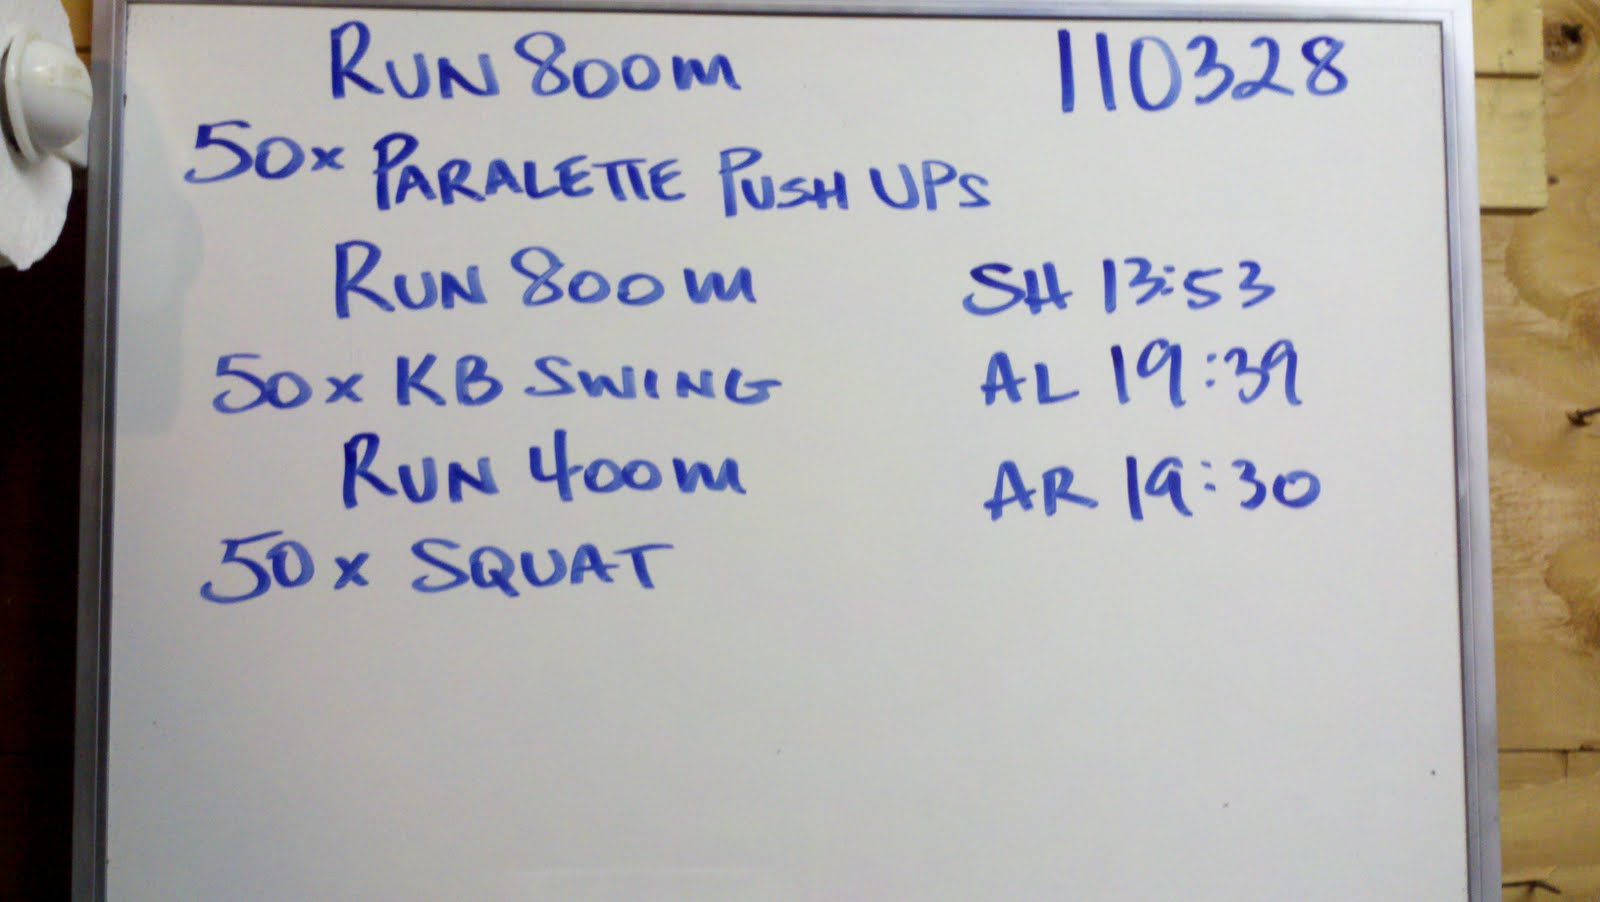 RUN 800m 110328
50x PARALETTE PUSH UPS
RUN 800m SH 13:53
50x KB SWING AL 19:39
RUN 400m AR 19:30
50x SQUAT